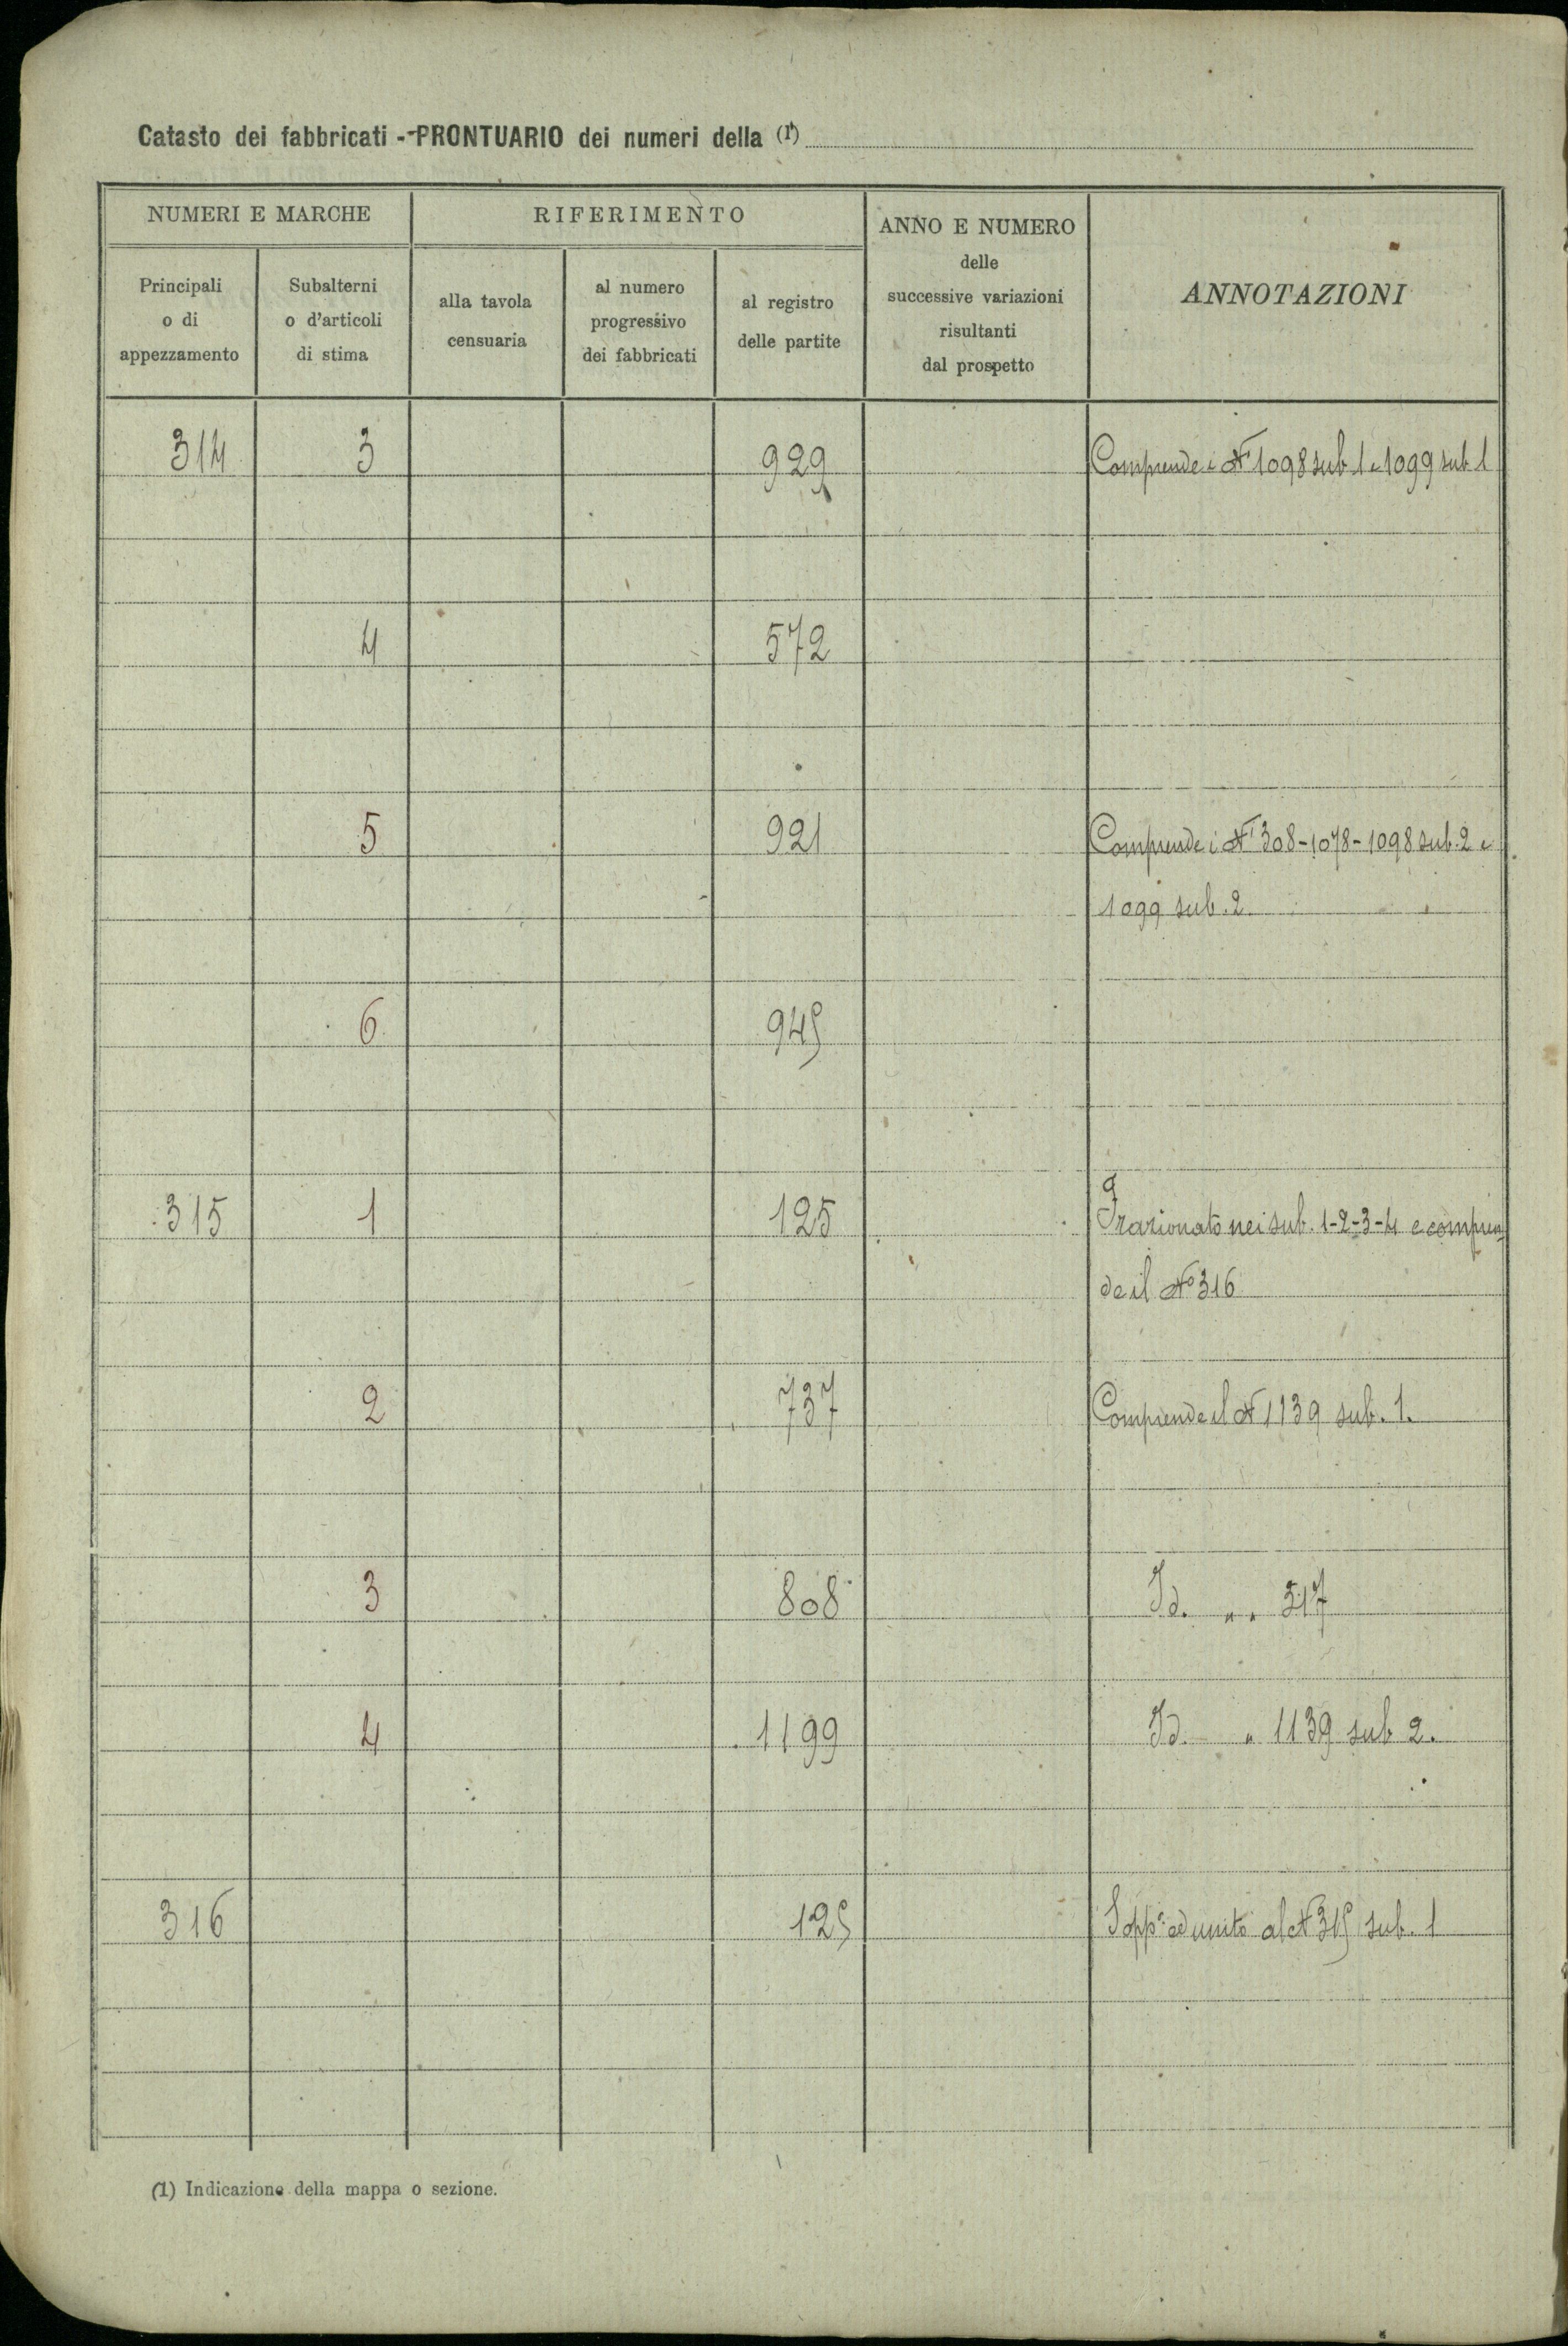 Catasto dei fabbricati - PRONTUARIO dei numeri della (1)
NUMERI E MARCHE
RIFERIMENTO
ANNO E NUMERO
delle
successive variazioni
risultanti
dal prospetto
ANNOTAZIONI
Principali
o di
appezzamento
Subalterni
o d'articoli
di stima
alla tavola
censuaria
al numero
progressivo
dei fabbricati
al registro
delle partite
314 3 929 Comprende i Ni 1098 sub 1 e 1099 sub 1
4 572
5 921 Comprende i Ni 308-1078-1098 sub. 2 e
1099 sub. 2
6 945
315 1 125 Frazionato nei sub. 1-2-3-4 e compren
de il No 316
2 737 Comprende il N 1139 sub. 1.
3 808 Id. " " 317
4 1199 Id. " 1139 sub 2.
316 125 Sopp° ed unito al N 315 sub. 1
(1) Indicazione della mappa o sezione.